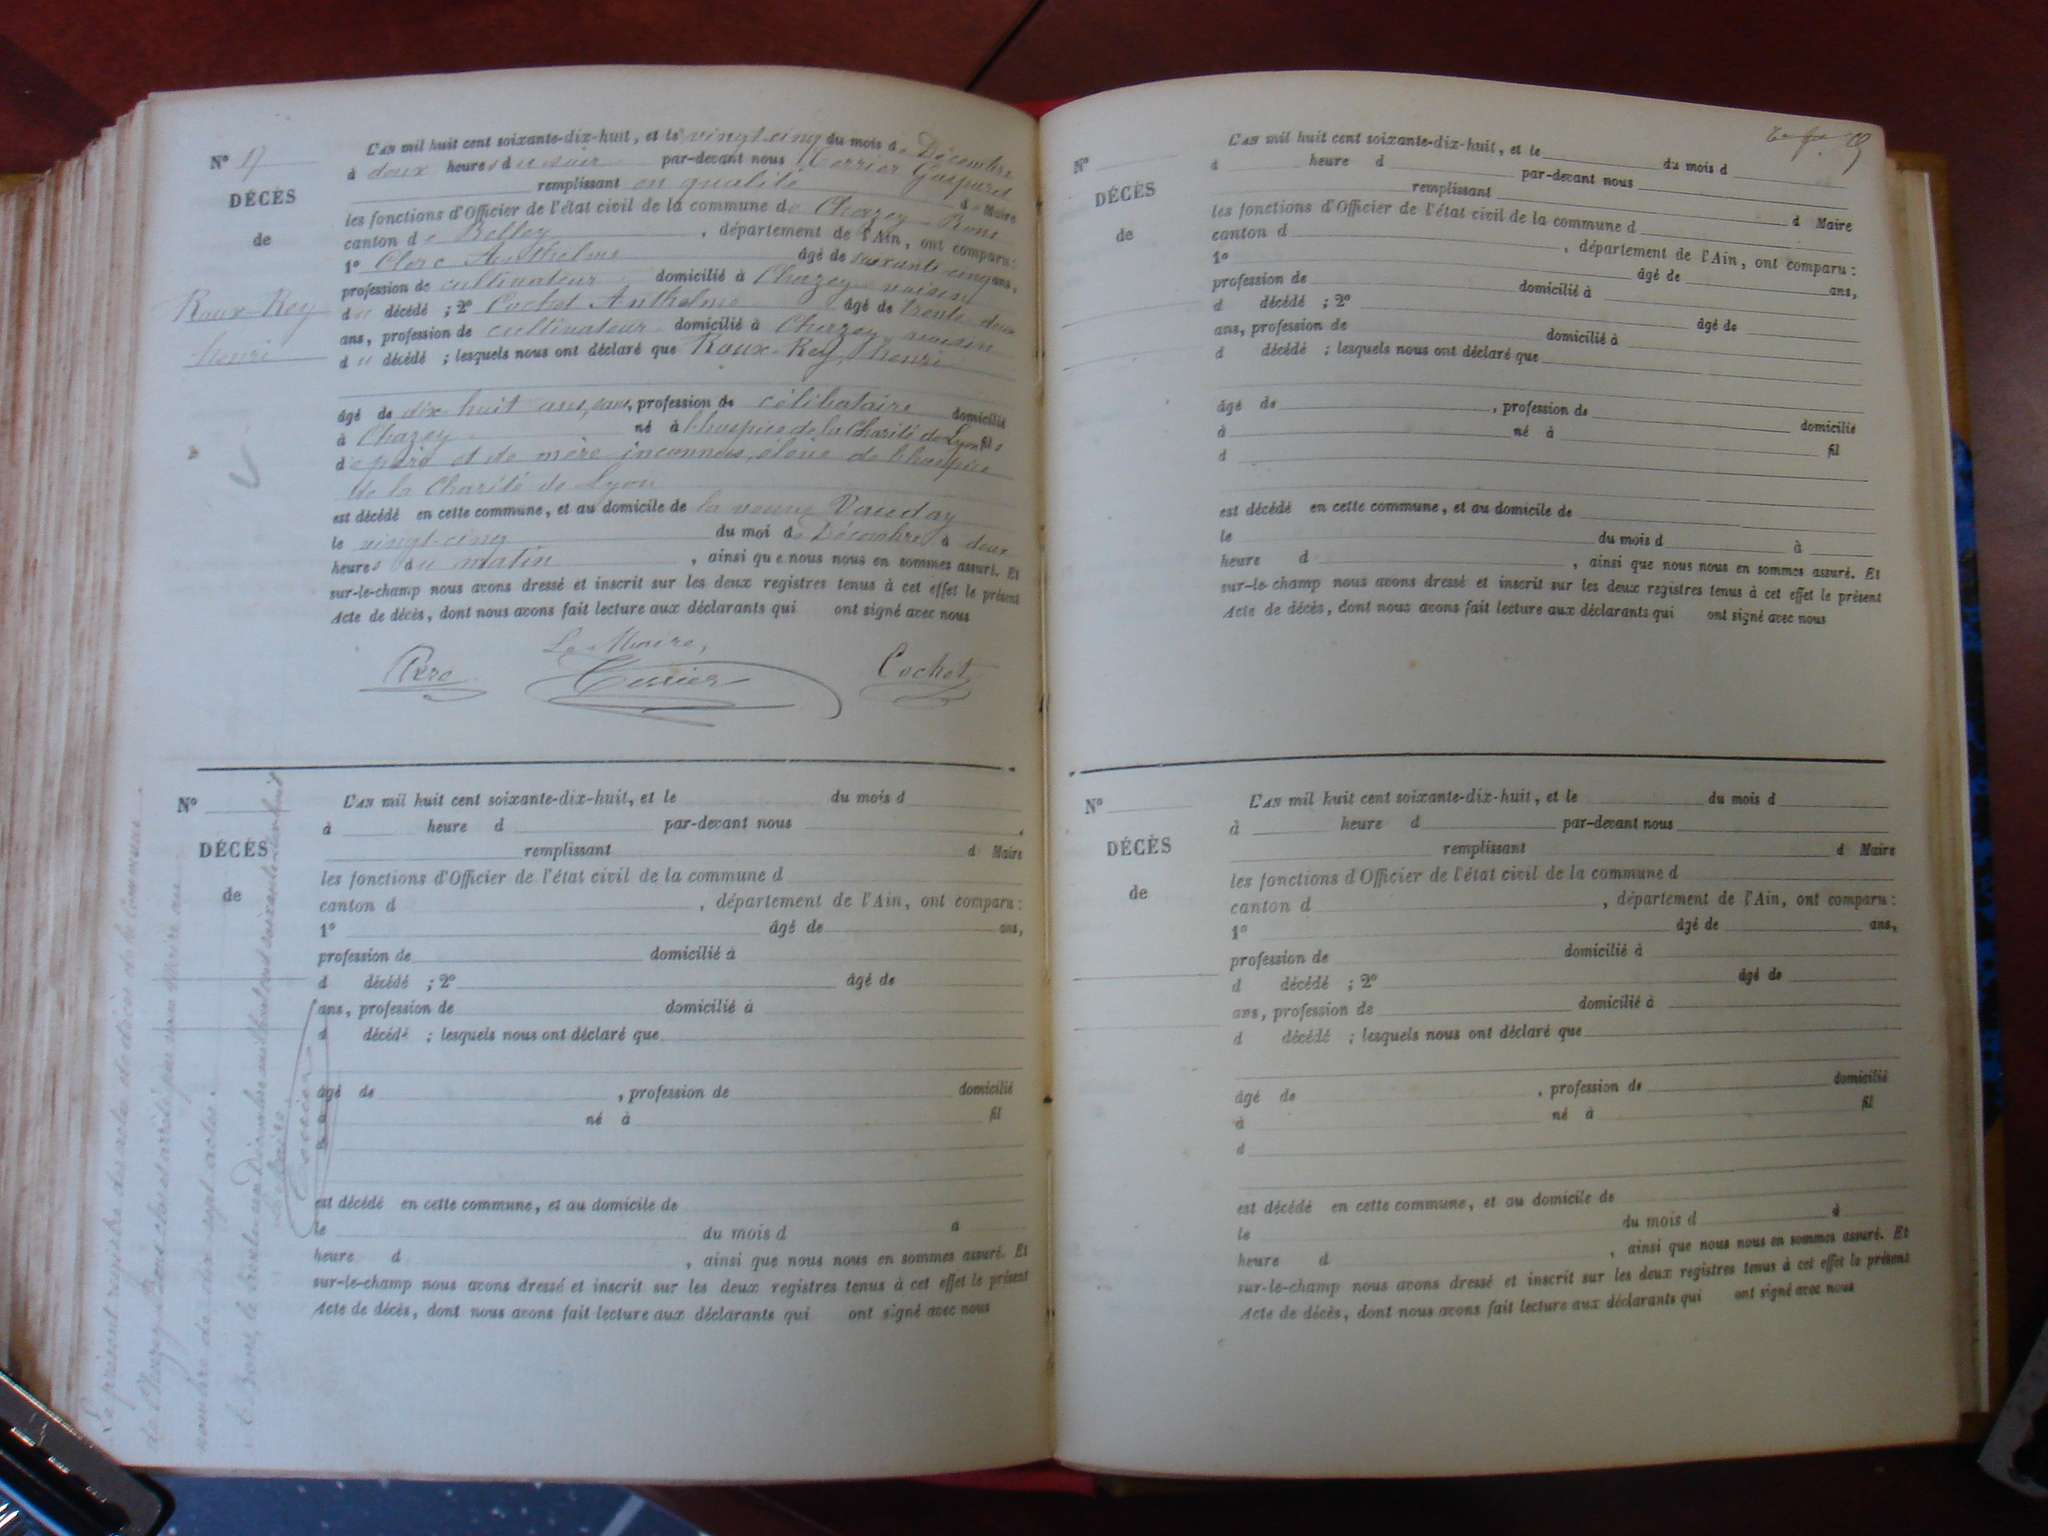 N° 17
DÉCÈS
de
Roux-Rey
henri
L'AN mil huit cent soixante-dix-huit, et le vingt cinq du mois de Décembre
à deux heures du soir par-devant nous Terrier Gaspard
remplissant en qualité de Maire
les fonctions d'Officier de l'état civil de la commune de Chazey-Bons
canton de Belley, département de l'Ain, ont comparu :
1° Clerc Anthelme âgé de soixante cinq ans,
profession de cultivateur domicilié à Chazey voisin
du décédé ; 2° Cochet Anthelme âgé de trente deux
ans, profession de cultivateur domicilié à Chazey, voisin
du décédé ; lesquels nous ont déclaré que Roux-Rey, henri
âgé de dix-huit ans, sans, profession de célibataire domicilié
à Chazey né à l'hospice de la Charité de Lyon fils
de père et de mère inconnus, élève de l'hospice
de la Charité de Lyon
est décédé en cette commune, et au domicile de la veuve Vauday
le vingt-cinq du moi de Décembre à deux
heures du matin, ainsi que nous nous en sommes assuré. Et
sur-le-champ nous avons dressé et inscrit sur les deux registres tenus à cet effet le présent
Acte de décès, dont nous avons fait lecture aux déclarants qui ont signé avec nous
Le Maire,
Clerc Terrier Cochet
N°
DÉCÈS
de
L'AN mil huit cent soixante-dix-huit, et le du mois d
à heure d par-devant nous
remplissant d Maire
les fonctions d'Officier de l'état civil de la commune d
canton d , département de l'Ain, ont comparu :
1° âgé de ans,
profession de domicilié à
d décédé ; 2° âgé de
ans, profession de domicilié à
d décédé ; lesquels nous ont déclaré que
âgé de , profession de domicilié
à né à fil
d
est décédé en cette commune, et au domicile de
le du mois d à
heure d , ainsi que nous nous en sommes assuré. Et
sur-le-champ nous avons dressé et inscrit sur les deux registres tenus à cet effet le présent
Acte de décès, dont nous avons fait lecture aux déclarants qui ont signé avec nous
Le présent registre des actes de décès de la Commune
de Chazey-Bons clos et arrêté par nous Maire au
nombre de dix sept actes.
à Bons, le trente un Décembre mil huit cent soixante dix huit
Le Maire
Terrier
N°
DÉCÈS
de
L'AN mil huit cent soixante-dix-huit, et le du mois d
à heure d par-devant nous
remplissant d Maire
les fonctions d'Officier de l'état civil de la commune d
canton d , département de l'Ain, ont comparu :
1° âgé de ans,
profession de domicilié à
d décédé ; 2° âgé de
ans, profession de domicilié à
d décédé ; lesquels nous ont déclaré que
âgé de , profession de domicilié
à né à fil
d
est décédé en cette commune, et au domicile de
le du mois d à
heure d , ainsi que nous nous en sommes assuré. Et
sur-le-champ nous avons dressé et inscrit sur les deux registres tenus à cet effet le présent
Acte de décès, dont nous avons fait lecture aux déclarants qui ont signé avec nous
N°
DÉCÈS
de
L'AN mil huit cent soixante-dix-huit, et le du mois d
à heure d par-devant nous
remplissant d Maire
les fonctions d'Officier de l'état civil de la commune d
canton d , département de l'Ain, ont comparu :
1° âgé de ans,
profession de domicilié à
d décédé ; 2° âgé de
ans, profession de domicilié à
d décédé ; lesquels nous ont déclaré que
âgé de , profession de domicilié
à né à fil
d
est décédé en cette commune, et au domicile de
le du mois d à
heure d , ainsi que nous nous en sommes assuré. Et
sur-le-champ nous avons dressé et inscrit sur les deux registres tenus à cet effet le présent
Acte de décès, dont nous avons fait lecture aux déclarants qui ont signé avec nous